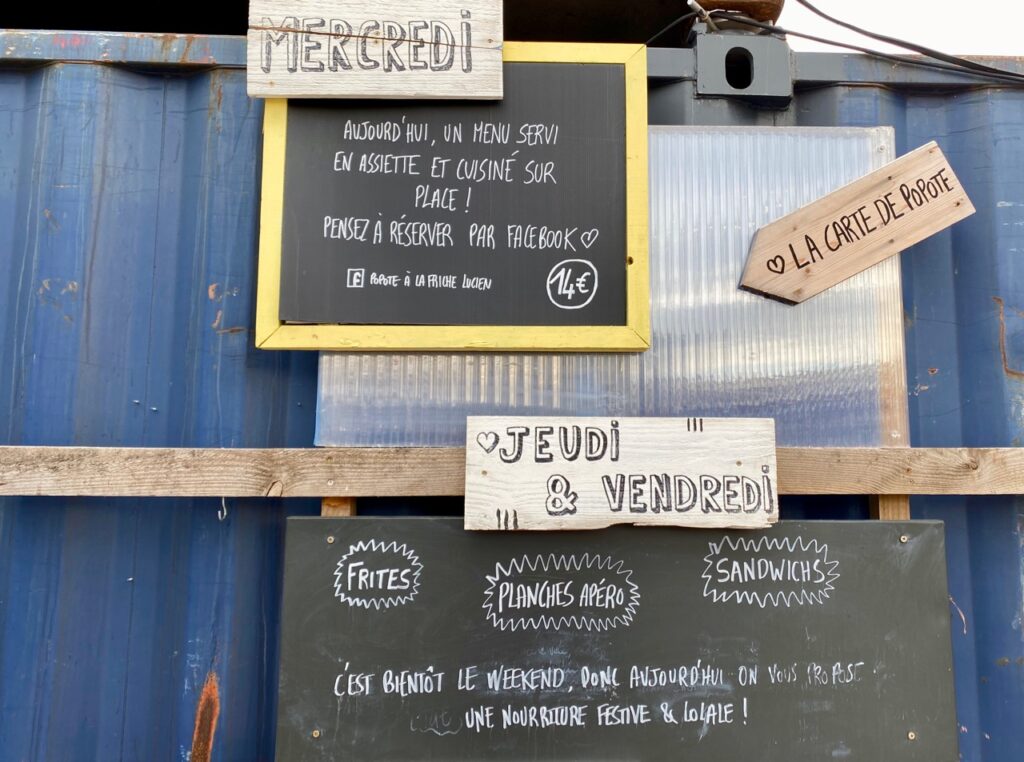 MERCREDI
AUJOURD'HUI, UN MENU SERVI
EN ASSIETTE ET CUISINÉ SUR
PLACE !
PENSEZ À RÉSERVER PAR FACEBOOK ♡
f POPOTE À LA FRICHE LUCIEN
14€
♡ LA CARTE DE POPOTE
♡ JEUDI
& VENDREDI
FRITES
PLANCHES APÉRO
SANDWICHS
C'EST BIENTÔT LE WEEKEND, DONC AUJOURD'HUI ON VOUS PROPOSE
UNE NOURRITURE FESTIVE & LOCALE !